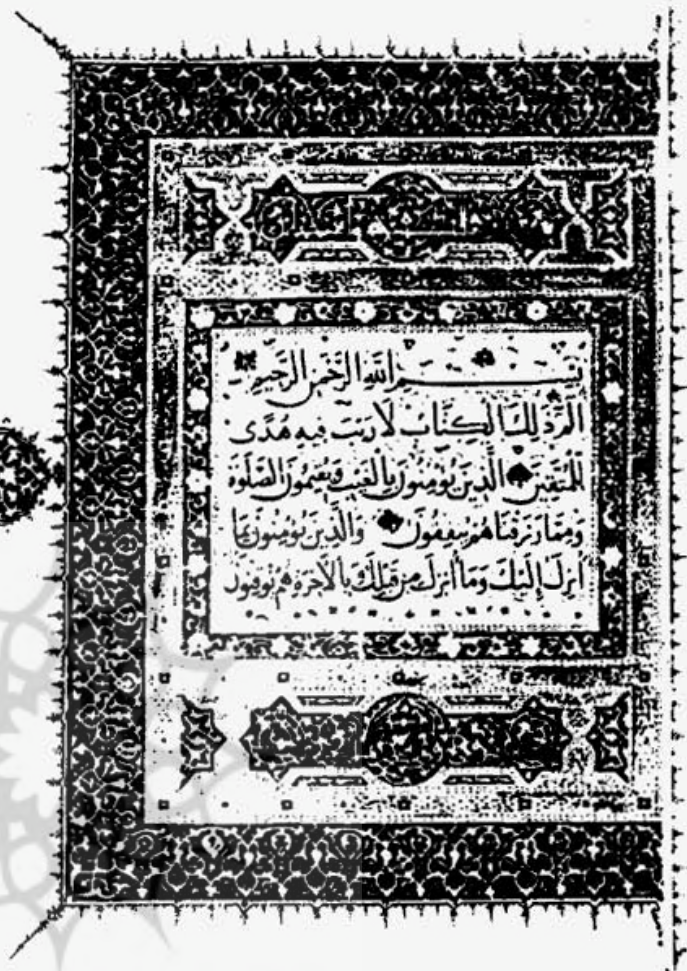 بِسْمِ اللَّهِ الرَّحْمَٰنِ الرَّحِيمِ
الم ذَلِكَ الْكِتَابُ لَا رَيْبَ فِيهِ هُدًى
لِلْمُتَّقِينَ الَّذِينَ يُؤْمِنُونَ بِالْغَيْبِ وَيُقِيمُونَ الصَّلَوٰةَ
وَمِمَّا رَزَقْنَاهُمْ يُنْفِقُونَ وَالَّذِينَ يُؤْمِنُونَ بِمَا
أُنْزِلَ إِلَيْكَ وَمَا أُنْزِلَ مِنْ قَبْلِكَ بِالْآخِرَةِ هُمْ يُوقِنُونَ